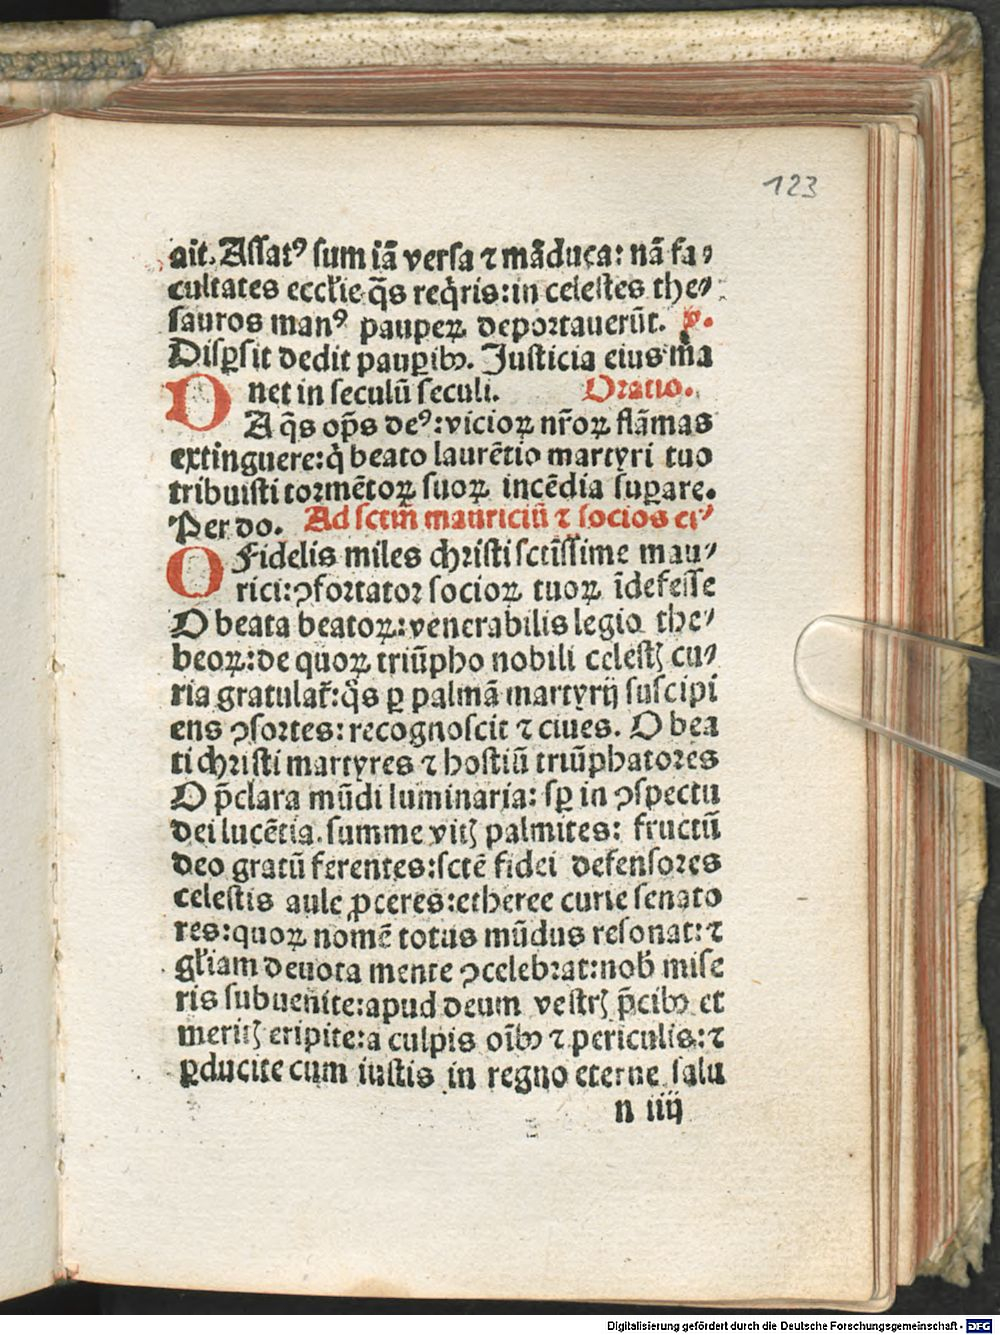 123
ait. Assatꝰ sum iã versa ⁊ mãduca: nã fa⸗
cultates eccłie q̃s reqͥris: in celestes the⸗
sauros manꝰ pauperꝝ deportauerũt. v.
Disꝑsit dedit pauꝑibꝫ. Justicia eius ma
net in seculũ seculi. Oratio.
DA q̃s op̃s deꝰ: vicioꝝ nr̃oꝝ flãmas
extinguere: qͥ beato laurẽtio martyri tuo
tribuisti tormẽtoꝝ suoꝝ incẽdia suꝑare.
Per do. Ad sctm̃ mauriciũ ⁊ socios ei⸗
O Fidelis miles christi sctissime mau⸗
rici: ꝯfortator socioꝝ tuoꝝ ĩdefesse
O beata beatoꝝ: venerabilis legio the⸗
beoꝝ: de quoꝝ triũpho nobili celestꝭ cu⸗
ria gratulat̃: q̃s ꝑ palmã martyrij suscipi
ens ꝯsortes: recognoscit ⁊ ciues. O bea
ti christi martyres ⁊ hostiũ triũphatores
O p̃clara mũdi luminaria: sꝑ in ꝯspectu
dei lucẽtia. summe vitꝭ palmites: fructũ
deo gratũ ferentes: sctẽ fidei defensores
celestis aule ꝓceres: etheree curie senato
res: quoꝝ nomẽ totus mũdus resonat: ⁊
gł̃iam deuota mente ꝯcelebrat: nob̃ mise
ris subuenite: apud deum vestrꝭ p̃cibꝫ et
meritꝭ eripite: a culpis oĩbꝫ ⁊ periculis: ⁊
ꝑducite cum iustis in regno eterne salu
n iiij
Digitalisierung gefördert durch die Deutsche Forschungsgemeinschaft - DFG